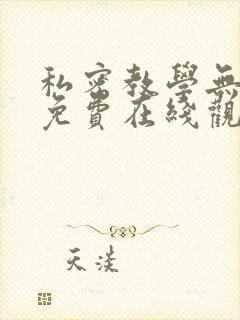 私密教學無
免費在綫觀
天淡